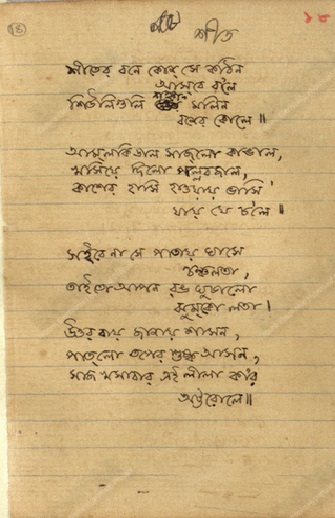 ১৮
শীত
শীতের বনে কোন্ সে কঠিন
আসবে ব'লে
শিউলিগুলি মলিন
বনের কোলে॥
আম্‌লকিডাল সাজলো কাঙাল,
খসিয়ে দিলো পল্লবজাল,
কাশের হাসি হাওয়ায় ভাসি'
যায় যে চ'লে॥
সইবে না সে পাতায় ঘাসে
চঞ্চলতা,
তাইতো আপন রঙ ঘুচালো
ঝুম্‌কো লতা।
উত্তর বায় জানায় শাসন,
পাতলো তপের শুষ্ক আসন,
সাজ খসাবার এই লীলা কার
অট্টরোলে॥